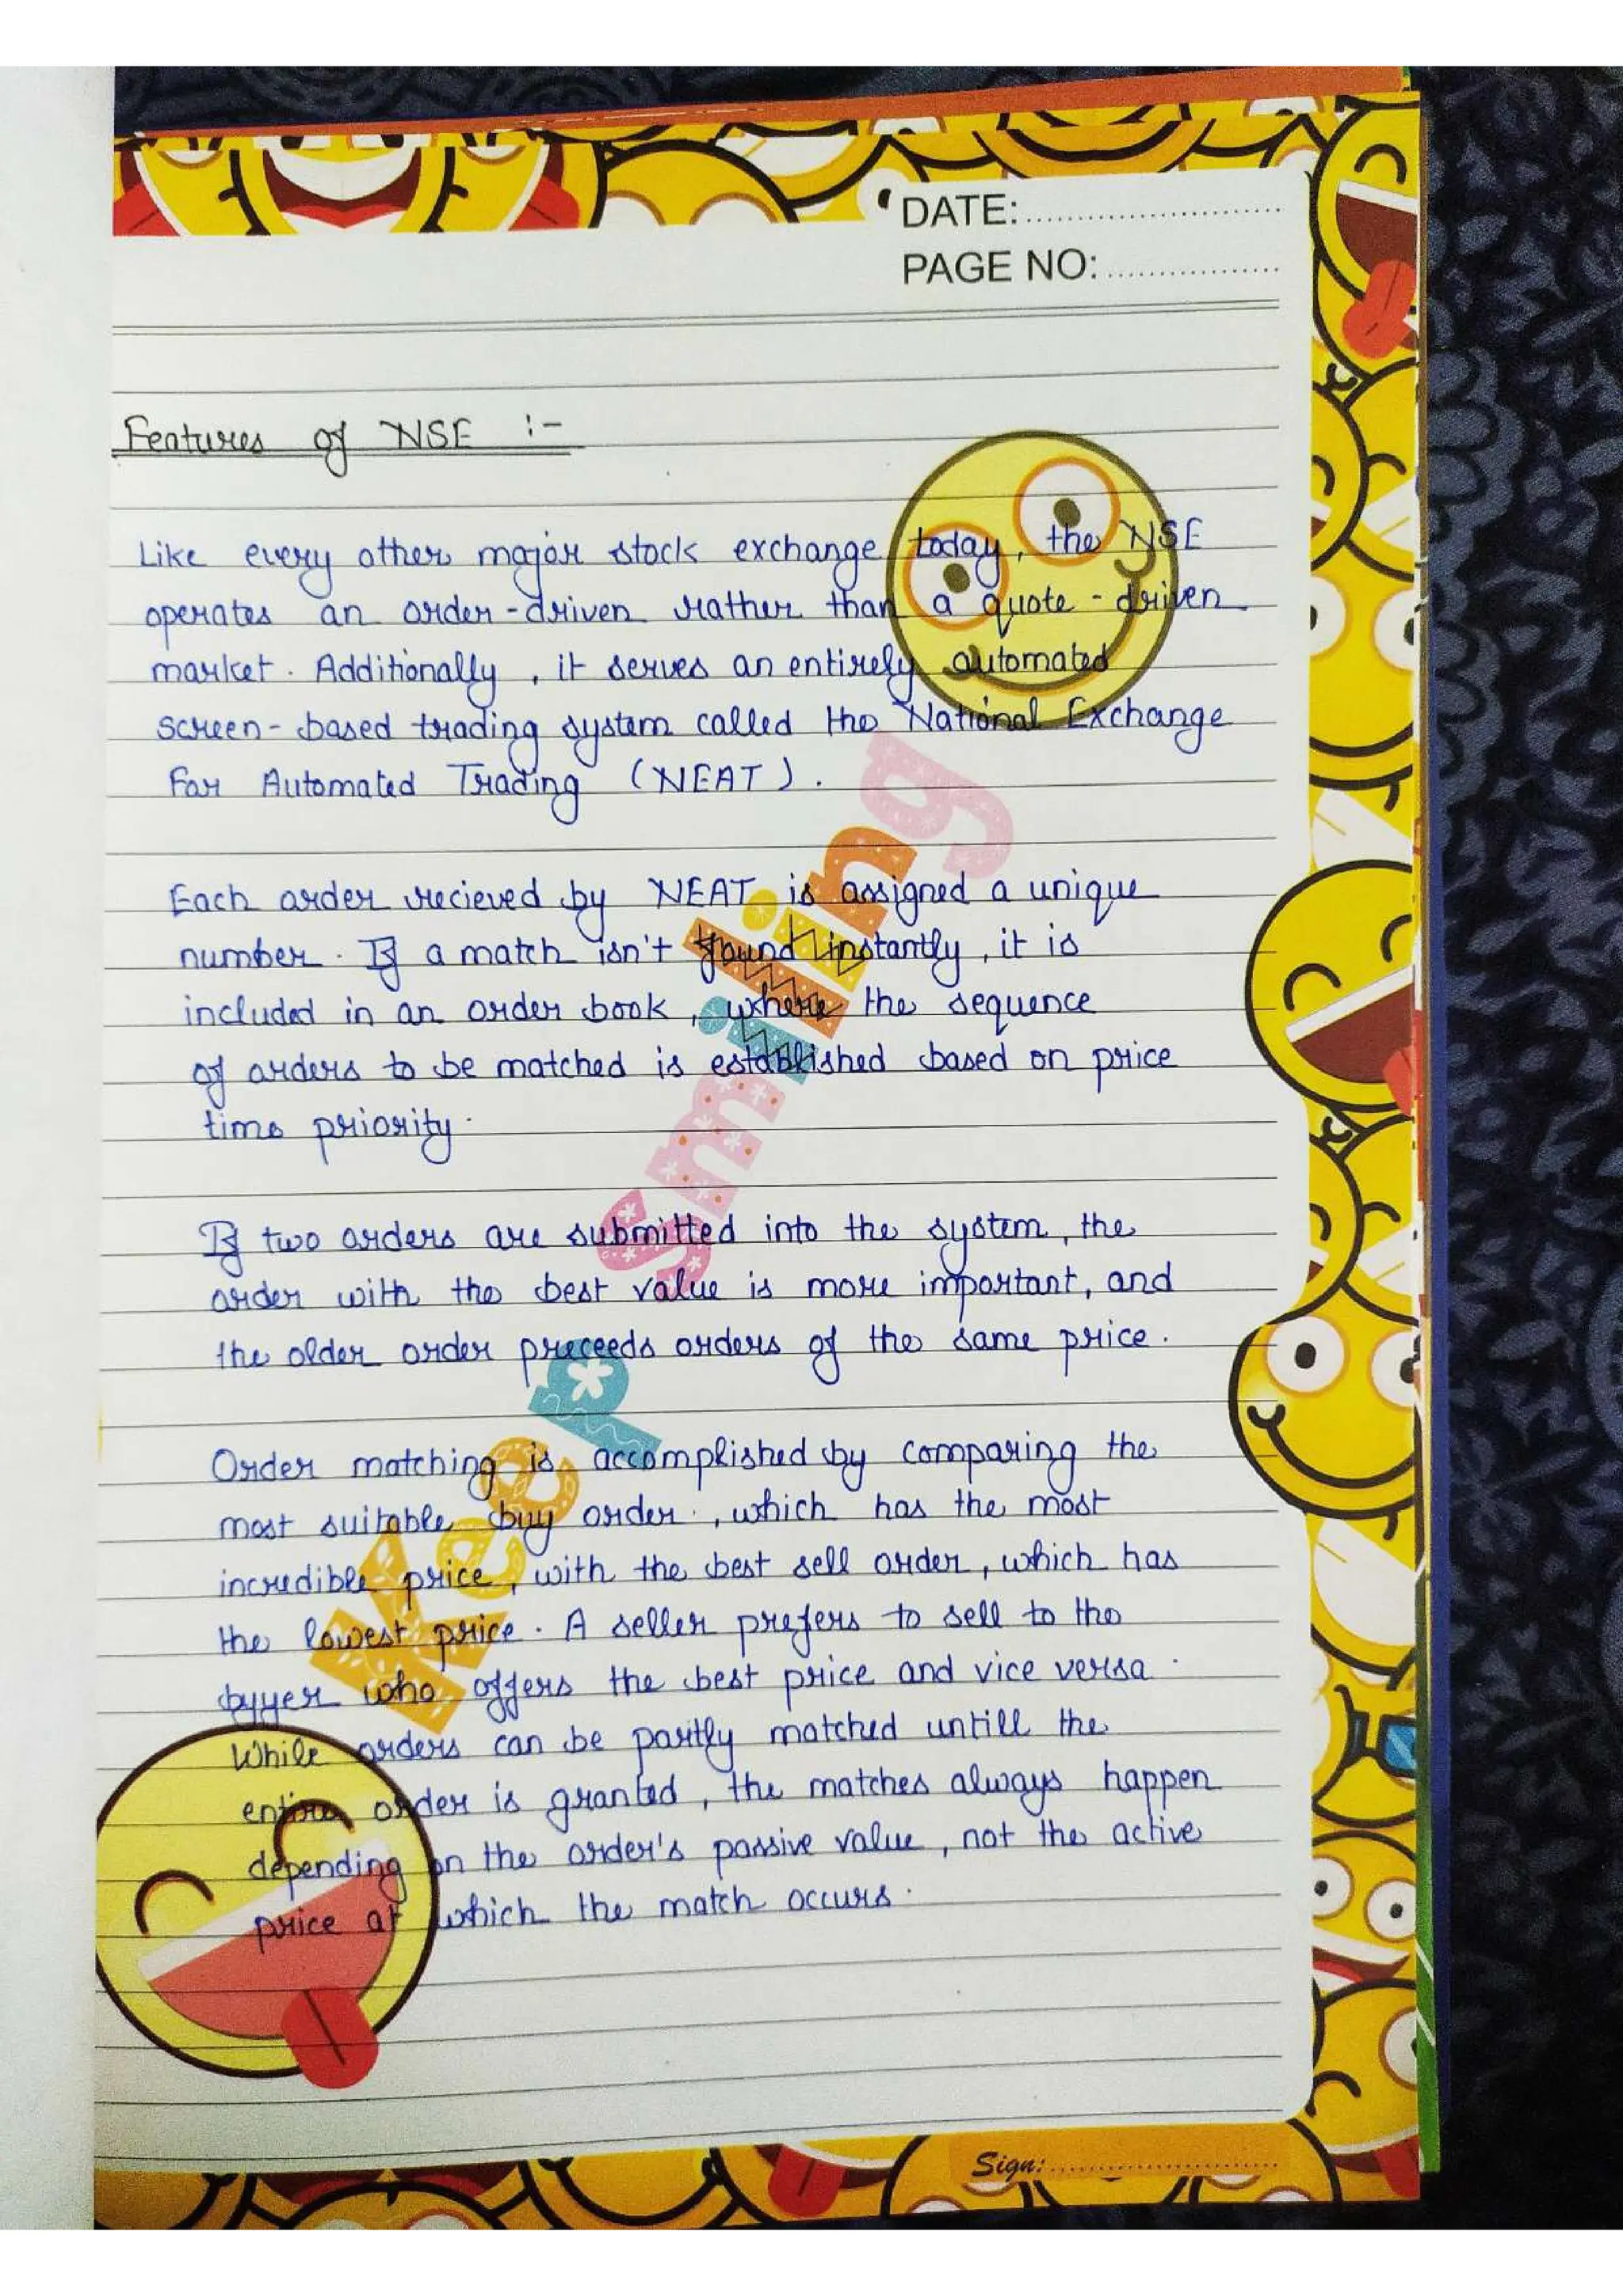 DATE:
PAGE NO:
Features of NSE :-
Like every other major stock exchange today, the NSE
operates an order-driven rather than a quote-driven
market. Additionally, it serves an entirely automated
screen-based trading system called the National Exchange
For Automated Trading (NEAT).
Each order recieved by NEAT is assigned a unique
number. If a match isn't found instantly, it is
included in an order book, where the sequence
of orders to be matched is established based on price
time priority.
If two orders are submitted into the system, the
order with the best value is more important, and
the older order preceeds orders of the same price.
Order matching is accomplished by comparing the
most suitable buy order, which has the most
incredible price, with the best sell order, which has
the lowest price. A seller prefers to sell to the
byyer who offers the best price and vice versa.
While orders can be partly matched untill the
entire order is granted, the matches always happen
depending on the order's passive value, not the active
price at which the match occurs.
Keep Smiling
Sign: